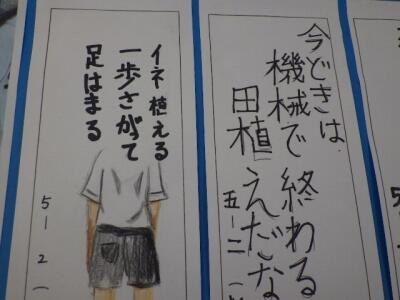 今どきは
機械で終わる
田植えだな
五-二
イネ植える
一歩さがって
足はまる
5-2